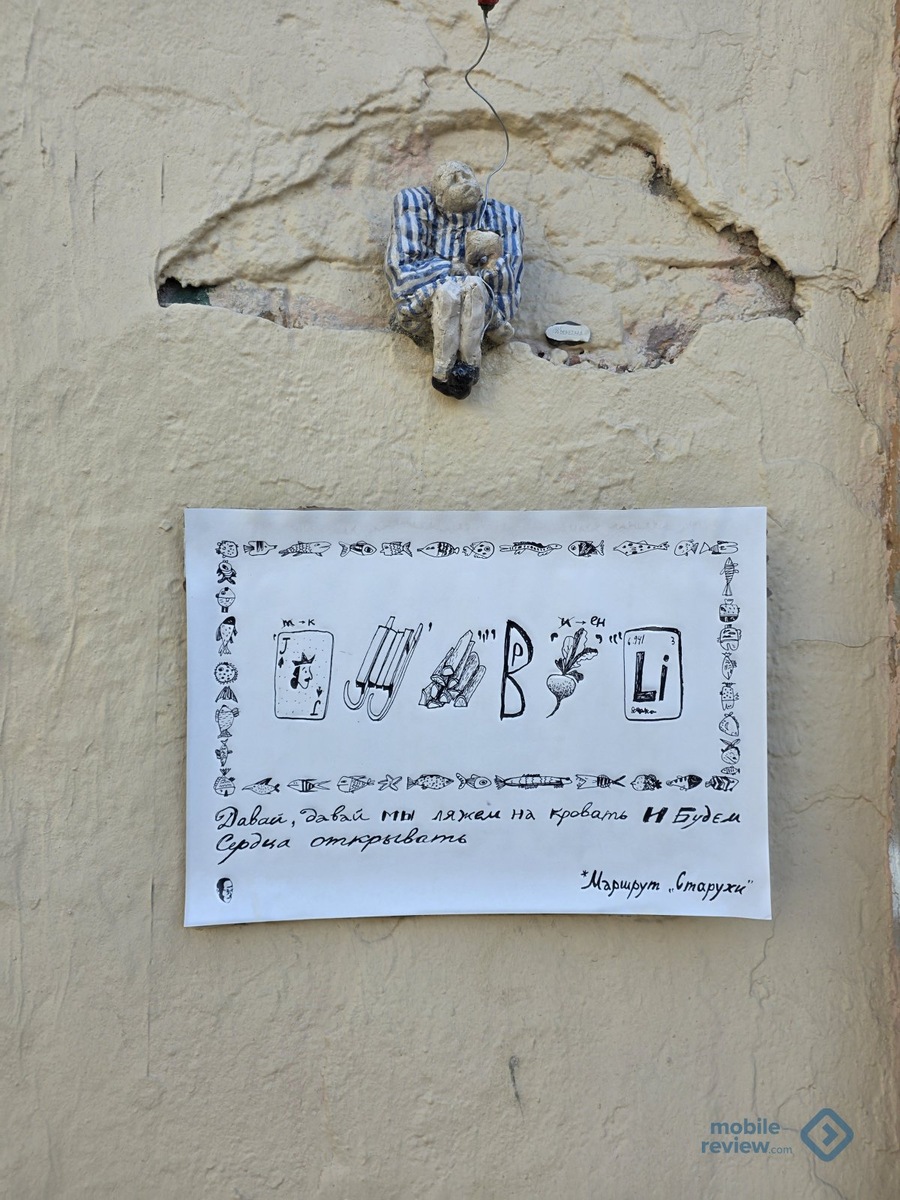 т→к
и→ен
J
J
6,941
3
Li
В
Р
Давай, давай мы ляжем на кровать И Будем
Сердца открывать
*Маршрут „Старухи"
mobile-
review.com